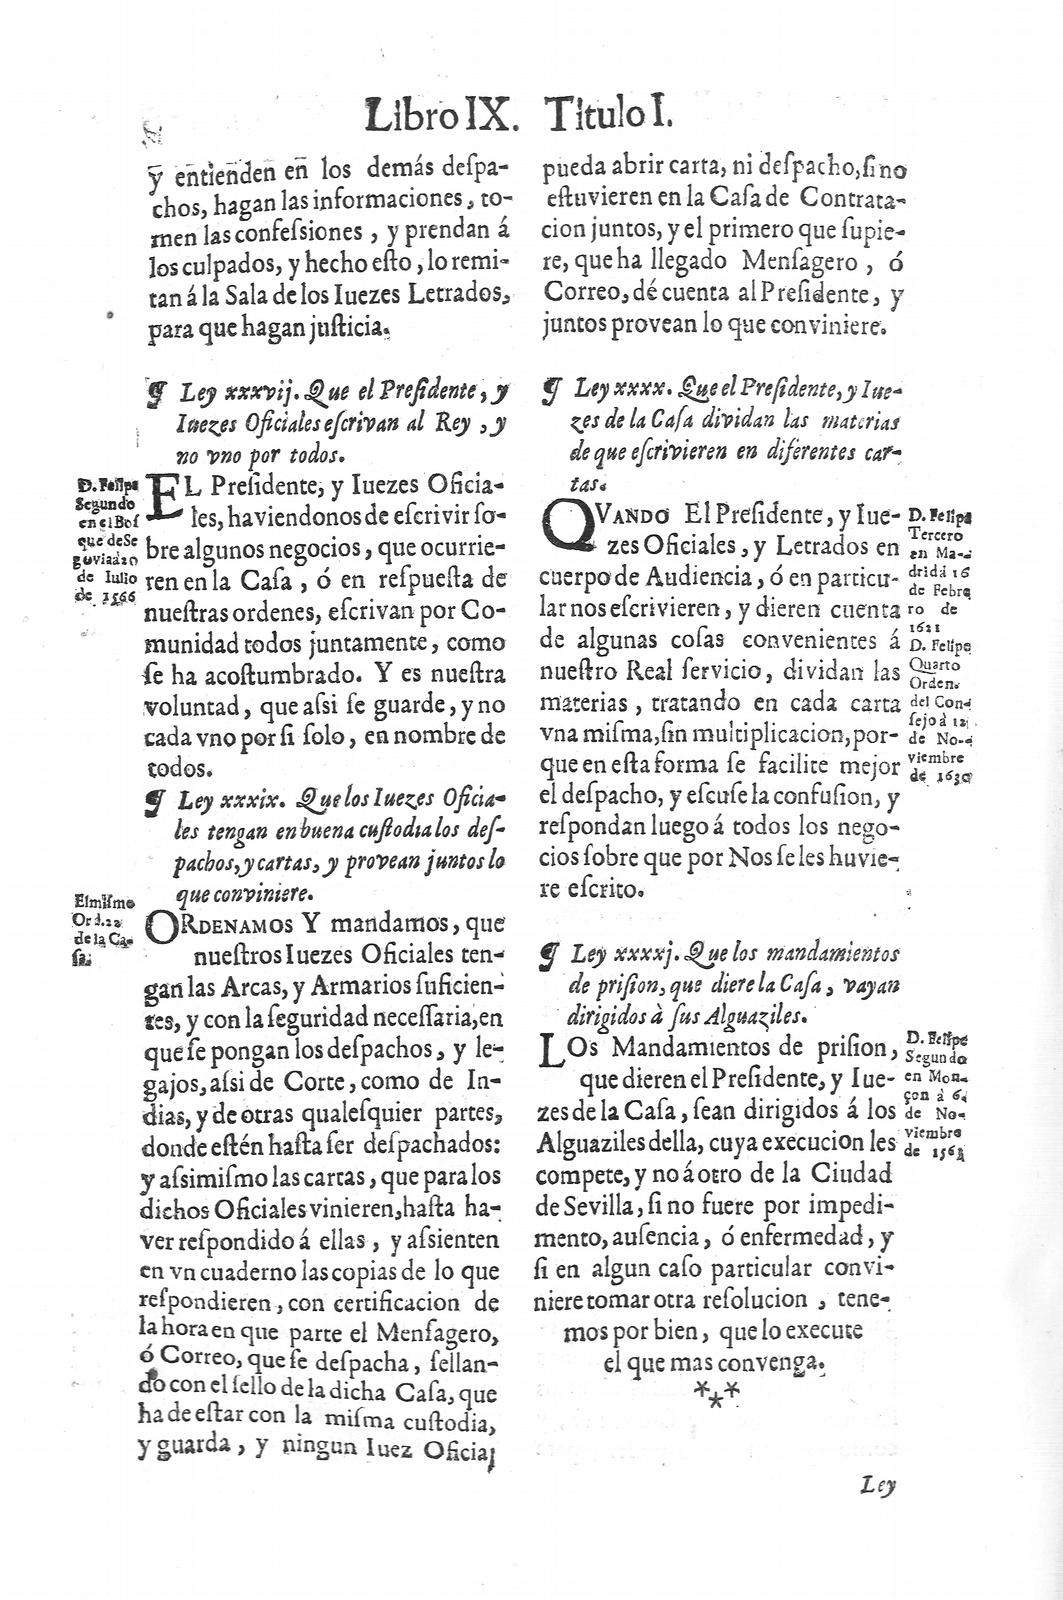 Libro IX. Titulo I.
y entienden en los demás deſpa-
chos, hagan las informaciones, to-
men las confeſsiones, y prendan á
los culpados, y hecho eſto, lo remi-
tan á la Sala de los Iuezes Letrados,
para que hagan juſticia.
¶ Ley xxxvij. Que el Preſidente, y
Iuezes Oficiales eſcrivan al Rey, y
no vno por todos.
D. Felipe
Segundo
en el Boſ
que de Se
govia à 20
de Iulio
de 1566
EL Preſidente, y Iuezes Oficia-
les, haviendonos de eſcrivir ſo-
bre algunos negocios, que ocurrie-
ren en la Caſa, ó en reſpueſta de
nueſtras ordenes, eſcrivan por Co-
munidad todos juntamente, como
ſe ha acoſtumbrado. Y es nueſtra
voluntad, que aſsi ſe guarde, y no
cada vno por ſi ſolo, en nombre de
todos.
¶ Ley xxxix. Que los Iuezes Oficia-
les tengan en buena cuſtodia los deſ-
pachos, y cartas, y provean juntos lo
que conviniere.
El miſmo
Ord. 22
de la Ca-
ſa.
ORDENAMOS Y mandamos, que
nueſtros Iuezes Oficiales ten-
gan las Arcas, y Armarios ſuficien-
tes, y con la ſeguridad neceſſaria, en
que ſe pongan los deſpachos, y le-
gajos, aſsi de Corte, como de In-
dias, y de otras qualeſquier partes,
donde eſtén haſta ſer deſpachados:
y aſsimiſmo las cartas, que para los
dichos Oficiales vinieren, haſta ha-
ver reſpondido á ellas, y aſsienten
en vn cuaderno las copias de lo que
reſpondieren, con certificacion de
la hora en que parte el Menſagero,
ó Correo, que ſe deſpacha, ſellan-
do con el ſello de la dicha Caſa, que
ha de eſtar con la miſma cuſtodia,
y guarda, y ningun Iuez Oficial
pueda abrir carta, ni deſpacho, ſi no
eſtuvieren en la Caſa de Contrata-
cion juntos, y el primero que ſupie-
re, que ha llegado Menſagero, ó
Correo, dé cuenta al Preſidente, y
juntos provean lo que conviniere.
¶ Ley xxxx. Que el Preſidente, y Iue-
zes de la Caſa dividan las materias
de que eſcrivieren en diferentes car-
tas.
QVANDO El Preſidente, y Iue-
zes Oficiales, y Letrados en
cuerpo de Audiencia, ó en particu-
lar nos eſcrivieren, y dieren cuenta
de algunas coſas convenientes á
nueſtro Real ſervicio, dividan las
materias, tratando en cada carta
vna miſma, ſin multiplicacion, por-
que en eſta forma ſe facilite mejor
el deſpacho, y eſcuſe la confuſion, y
reſpondan luego á todos los nego-
cios ſobre que por Nos ſe les huvie-
re eſcrito.
D. Felipe
Tercero
en Ma-
drid á 16
de Febre
ro de
1621
D. Felipe
Quarto
Orden.
del Con-
ſejo à 12
de No-
viembre
de 1630
¶ Ley xxxxj. Que los mandamientos
de priſion, que diere la Caſa, vayan
dirigidos à ſus Alguaziles.
LOs Mandamientos de priſion,
que dieren el Preſidente, y Iue-
zes de la Caſa, ſean dirigidos á los
Alguaziles della, cuya execucion les
compete, y no á otro de la Ciudad
de Sevilla, ſi no fuere por impedi-
mento, auſencia, ó enfermedad, y
ſi en algun caſo particular convi-
niere tomar otra reſolucion, tene-
mos por bien, que lo execute
el que mas convenga.
D. Felipe
Segundo
en Mon-
çon à 6
de No-
viembre
de 1563
Ley